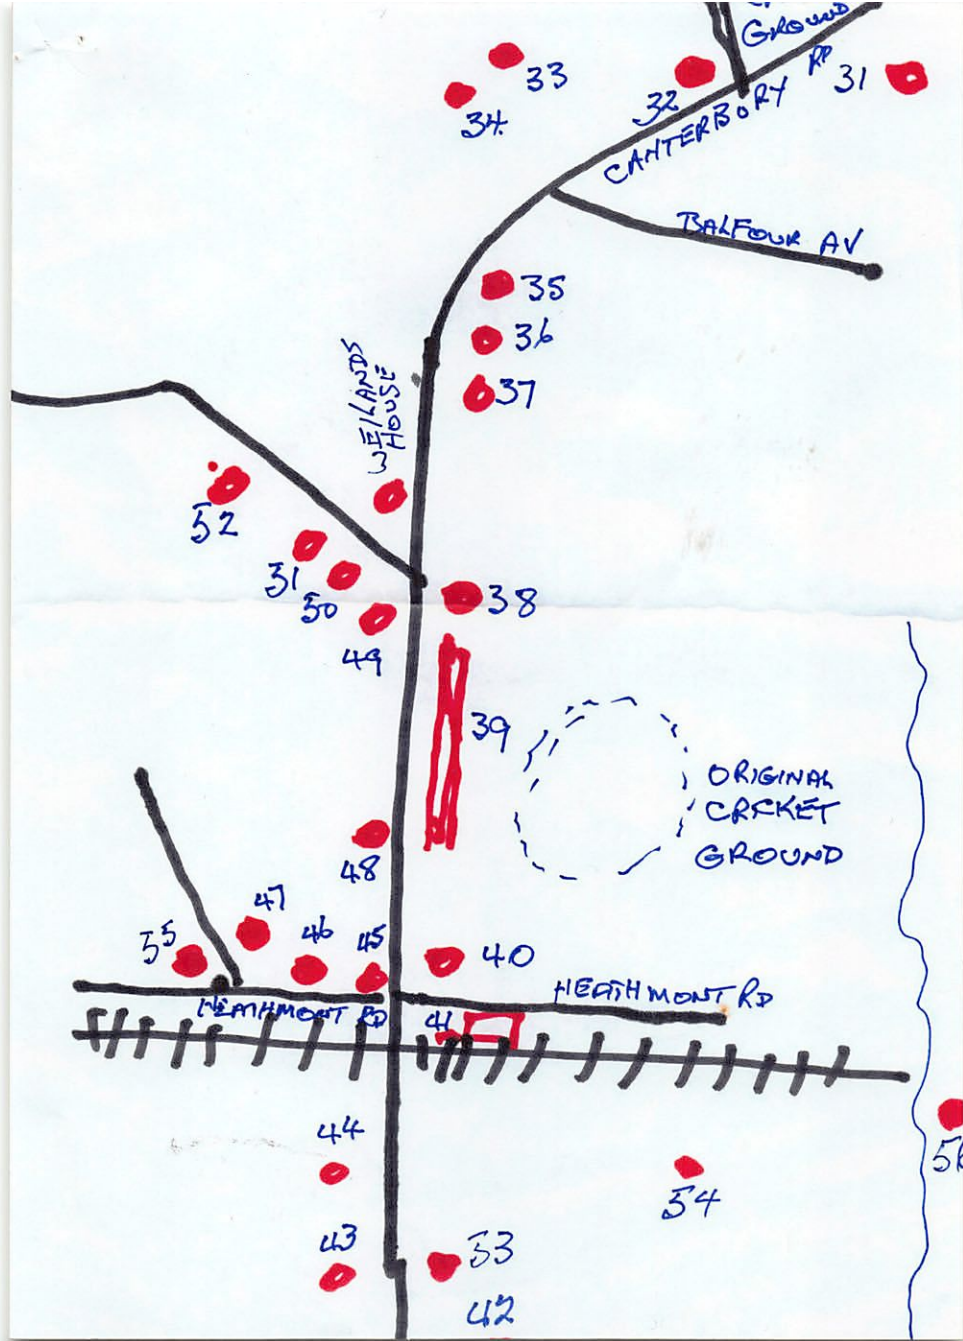 GROUND
33
34
32
31
CANTERBORY RD
BALFOUR AV
35
36
37
WEILANDS
HOUSE
52
51
50
49
38
39
ORIGINAL
CRCKET
GROUND
48
47
55
46
45
40
HEATHMONT RD
HEATHMONT RD
41
44
54
43
53
42